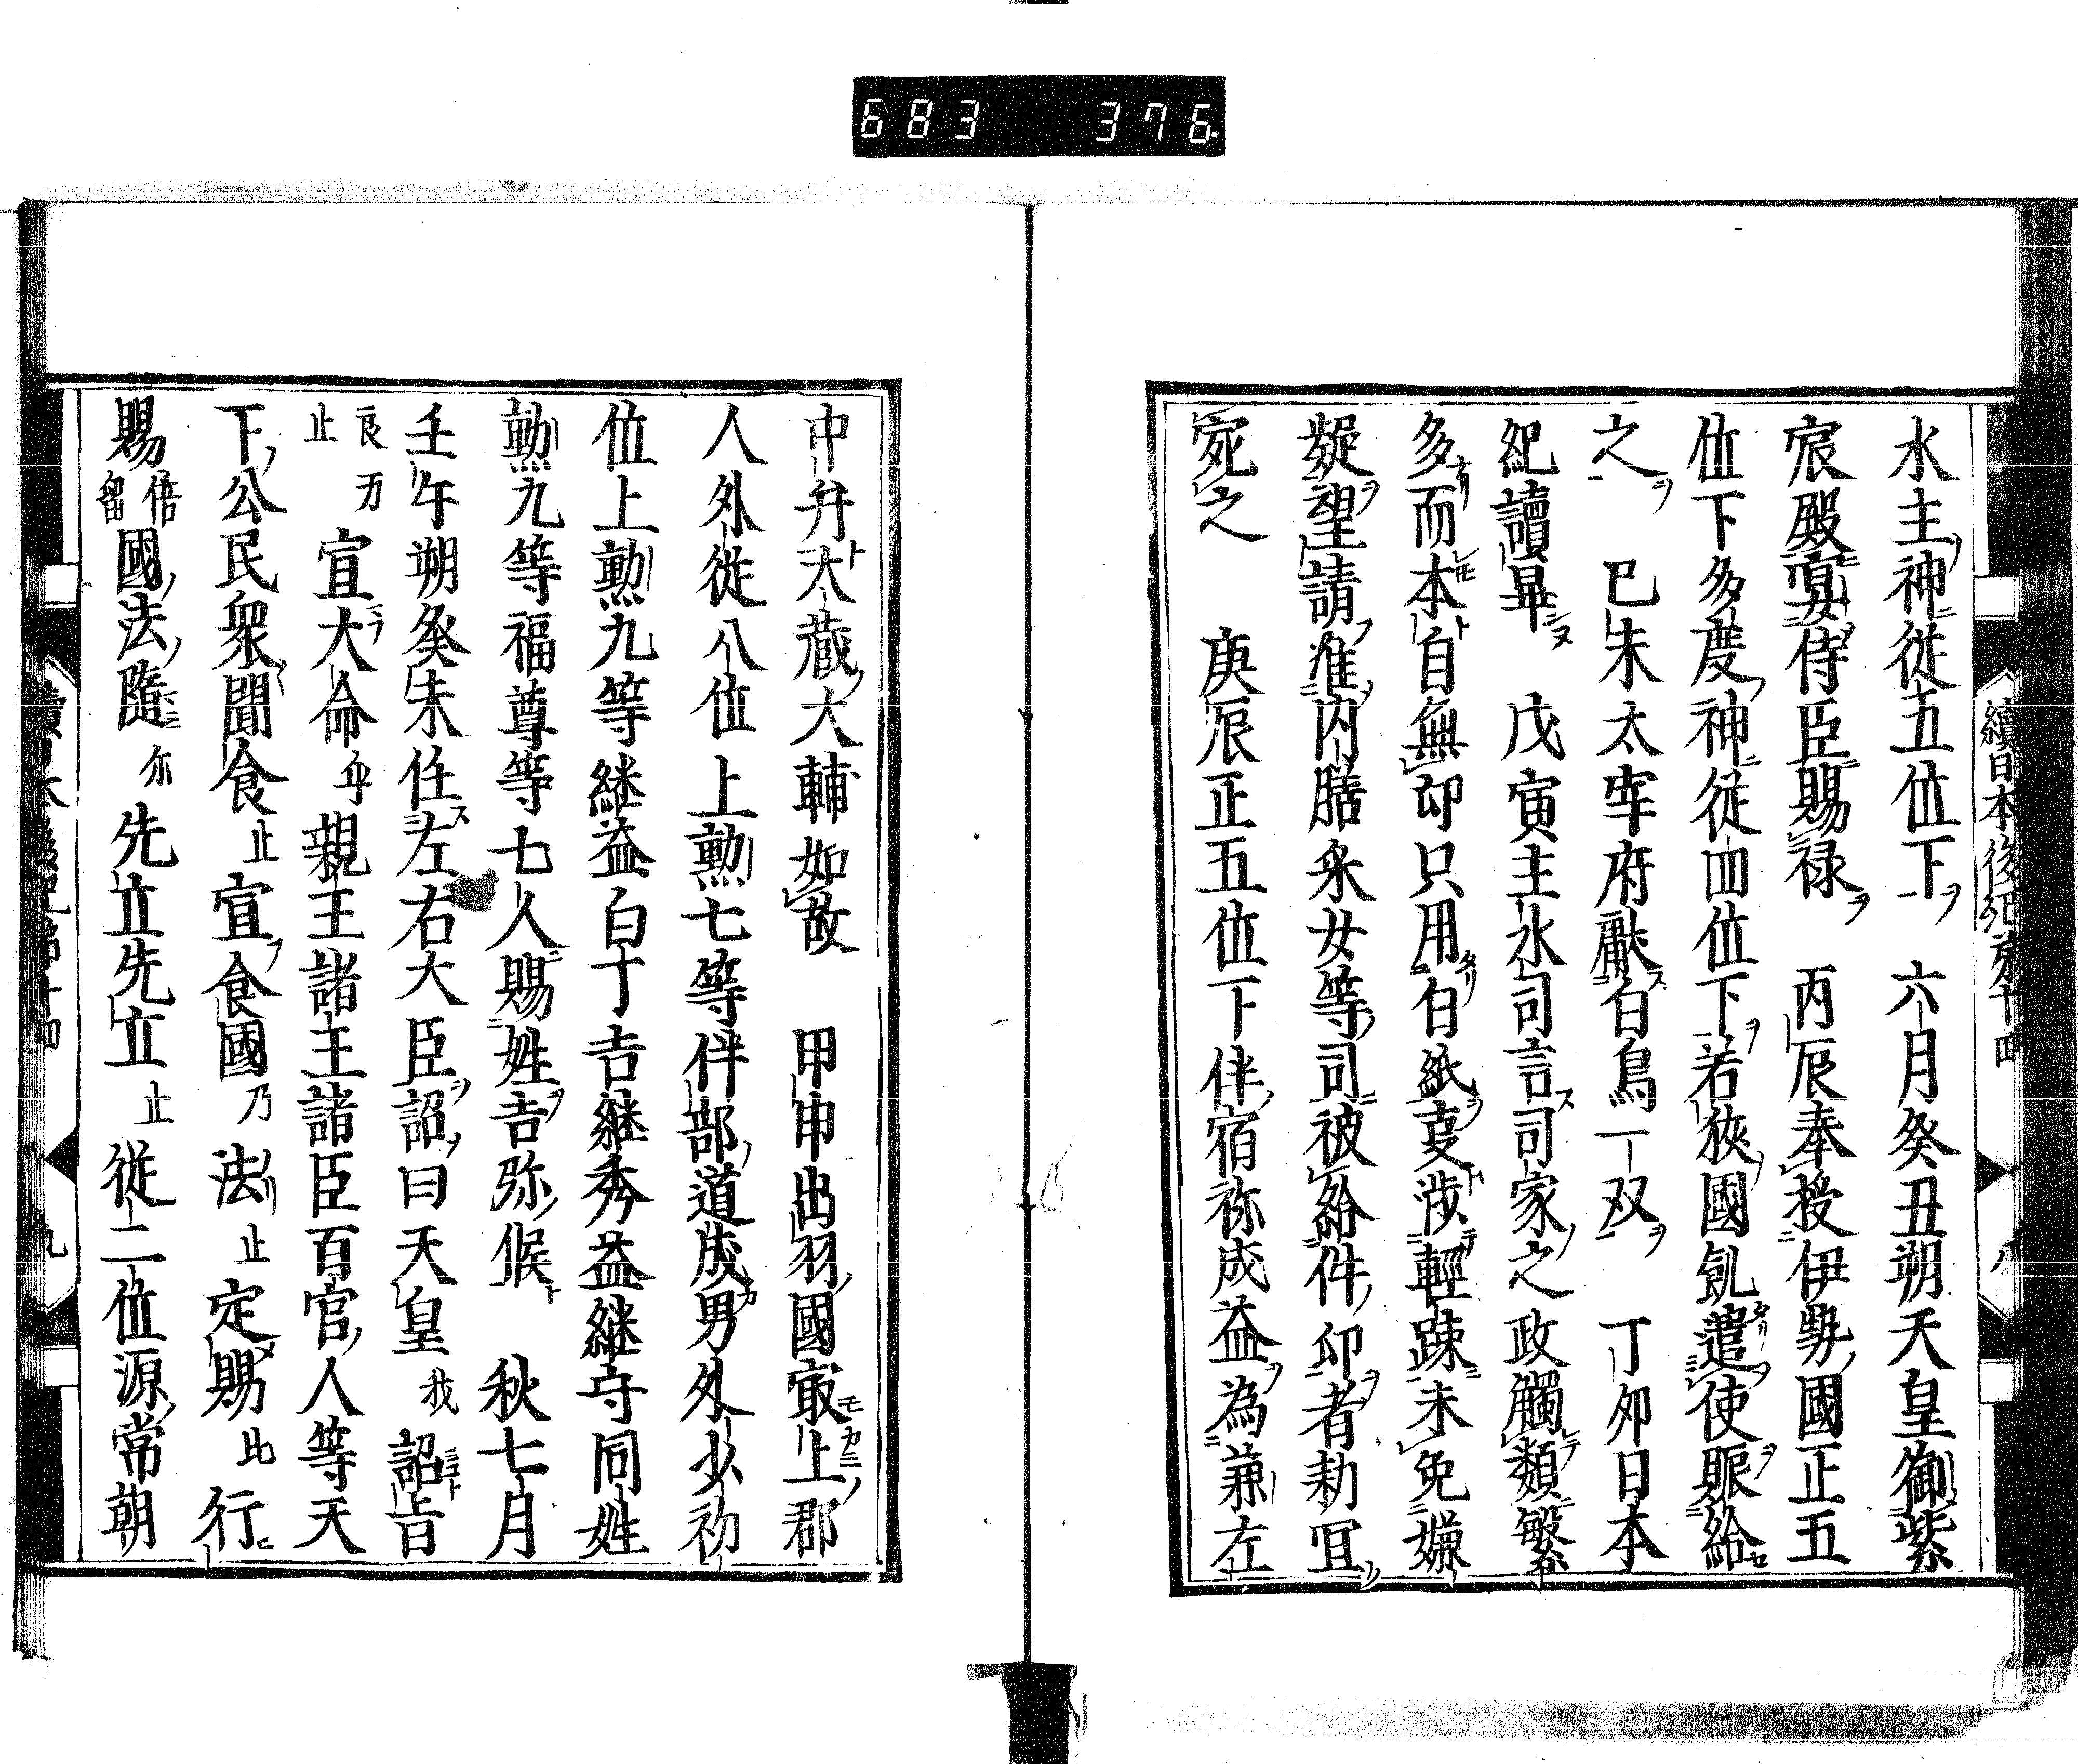 683 376
續日本後紀卷十四
八
水主神從五位下 六月癸丑朔天皇御紫
宸殿宴侍臣賜祿 丙辰奉授伊勢國正五
位下多度神從四位下若狹國飢遣使賑給
之 己未太宰府獻白烏一双 丁卯日本
紀讀畢 戊寅主水司言司家之政觸類繁
多而本自無印只用白紙支渉輕踈未免嫌
疑望請准内膳采女等司被給件印者勅冝
宛之 庚辰正五位下伴宿祢成益為兼左
中弁大藏大輔如故 甲申出羽國㝡上郡
人外從八位上勳七等伴部道成男外少初
位上勳九等継益白丁吉継秀益継守同姓
勳九等福尊等七人賜姓吉弥候 秋七月
壬午朔癸未任左右大臣詔曰天皇我詔旨
良万止宣大命乎親王諸王諸臣百官人等天
下公民衆聞食止宣食國乃法止定賜比行
賜倍留國法隨尓先立先立止從二位源常朝
九